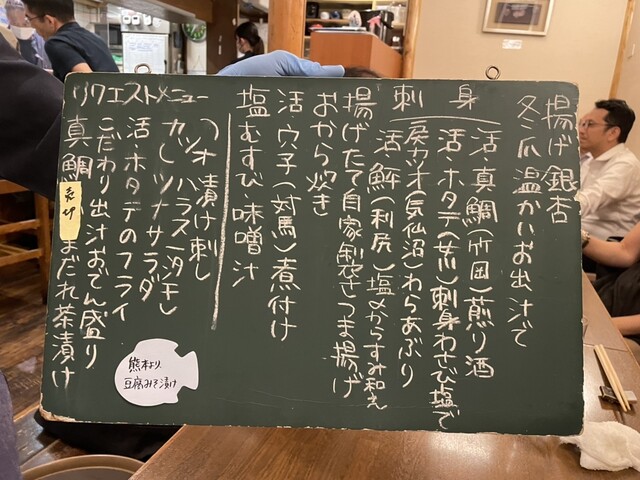 揚げ銀杏
冬瓜 温かいお出汁で
刺身
活・真鯛(竹岡)煎り酒
活・ホタテ(荒)刺身わさび塩で
戻りカツオ(気仙沼)わらあぶり
活・鮃(利尻)塩からすみ和え
揚げたて自家製さつま揚げ
おから炊き
活・穴子(対馬)煮付け
塩むすび・味噌汁
リクエストメニュー
カツオ漬け刺し
カツオハラス一夜干し
ツナサラダ
活・ホタテのフライ
こだわり出汁おでん盛り
真鯛
ごまだれ茶漬け
売切
熊本より、
豆腐みそ漬け